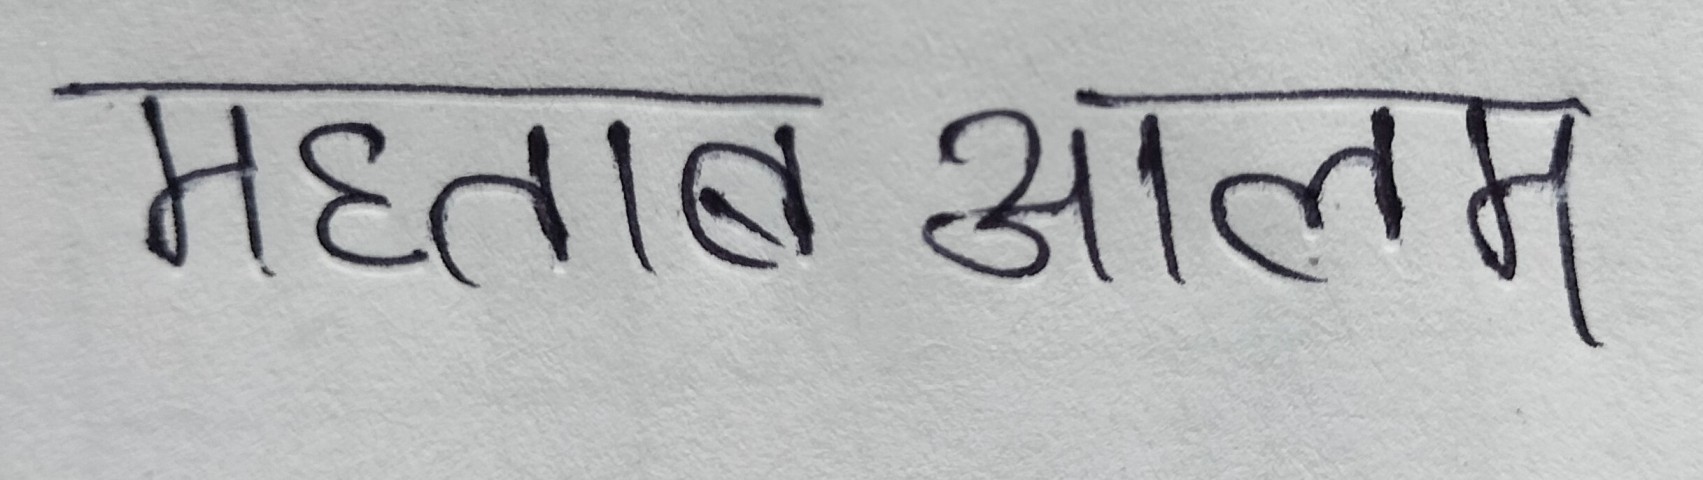 महताब आलम